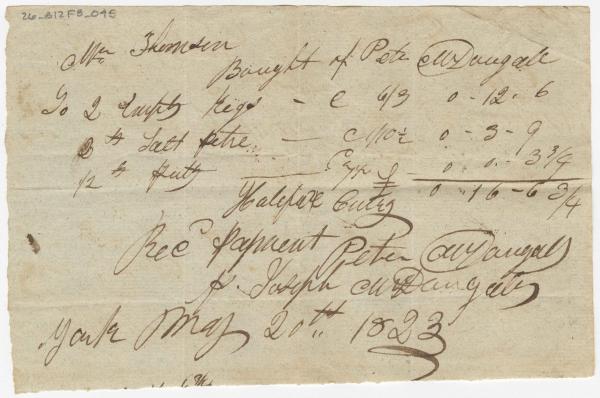 26-B12F8-04E
Mr Thomson
Bought of Peter McDougall
To 2 Empty Kegs — @ 6/3 0 - 12 - 6
Salt petre — 0 - 3 - 9
1/2 lb Putty 0 - 0 - 3 3/4
Halifax Curcy £ 0 - 16 - 6 3/4
Recd Payment Peter McDougall
pr Joseph McDougall
York May 20th 1823